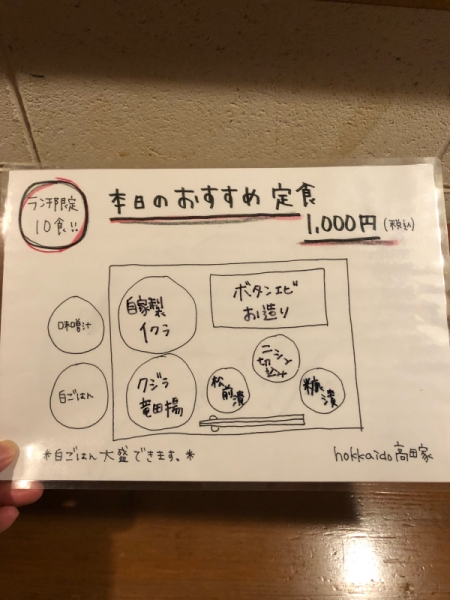 ランチ限定
10食!!
本日のおすすめ定食
1,000円(税込)
自家製
イクラ
ボタンエビ
お造り
味噌汁
ニシン
切込み
クジラ
竜田揚
松前漬
糠漬
白ごはん
*白ごはん大盛できます。*
hokkaido 高田家